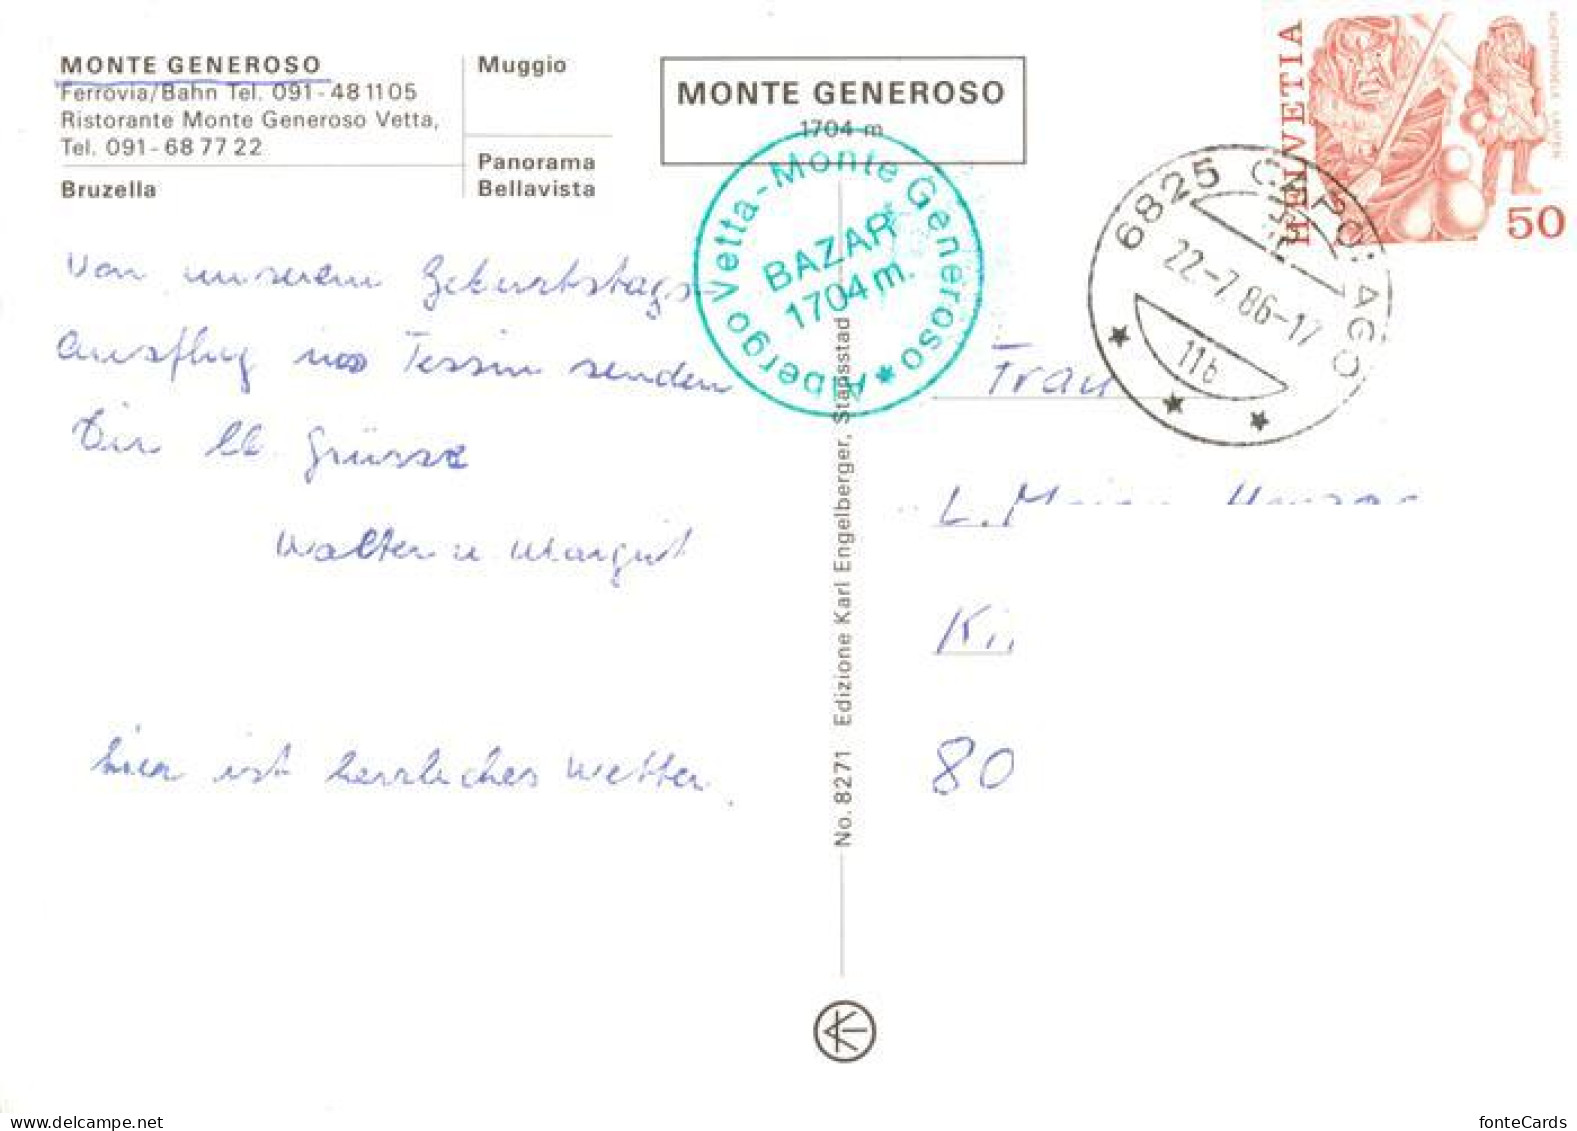 MONTE GENEROSO
Ferrovia/Bahn Tel. 091-48 11 05
Ristorante Monte Generoso Vetta,
Tel. 091-68 77 22
Bruzella
Muggio
Panorama
Bellavista
MONTE GENEROSO
1704 m
Albergo Vetta-Monte Generoso *
BAZAR
1704 m.
HELVETIA
50
6825 CAPOLAGO
22-7.86-17
11b
Von unserem Geburtstags-
Ausflug ins Tessin senden
Dir lb. Grüsse
Walter u. Margrit
hier ist herrliches Wetter.
Frau
L.
Ki
80
No. 8271 Edizione Karl Engelberger, Stansstad
delcampe.net
fonteCards